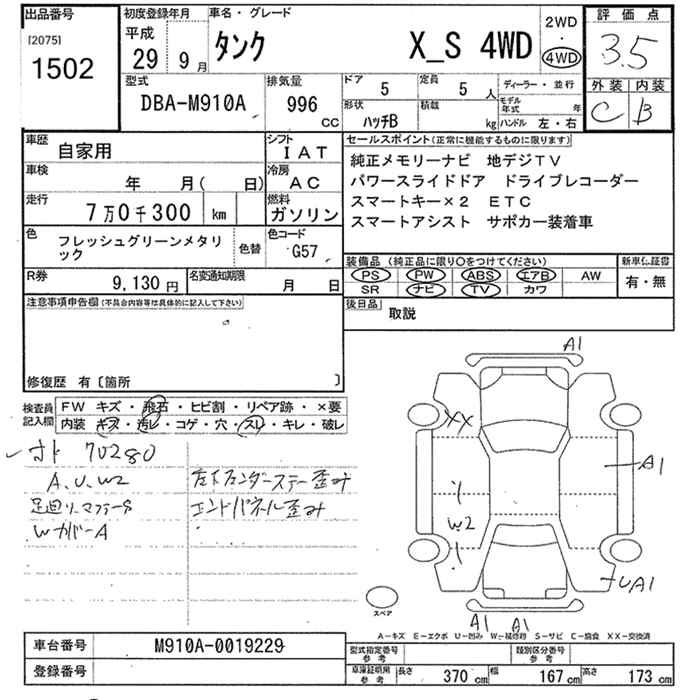 出品番号
[2075]
1502
初度登録年月
平成
29 9月
車名・グレード
タンク X_S 4WD
2WD
・
4WD
評価点
3.5
外装 内装
C B
型式
DBA-M910A
排気量
996
CC
ドア
5
定員
5 人
形状
ハッチB
積載
kg
ディーラー・並行
モデル
年式
年
ハンドル 左・右
車歴
自家用
シフト
IAT
車検
年 月( 日)
冷房
AC
走行
7万0千300 km
燃料
ガソリン
色
フレッシュグリーンメタリ
ック
色替
色コード
G57
R券
9,130円
名変通知期限
月 日
セールスポイント(正常に機能するものに限ります)
純正メモリーナビ 地デジTV
パワースライドドア ドライブレコーダー
スマートキー×2 ETC
スマートアシスト サポカー装着車
装備品(純正品に限り○をつけてください)
新車保証書
PS PW ABS エアB AW
SR ナビ TV カワ
有・無
後日品
取説
注意事項申告欄(不具合内容等は具体的に記入して下さい)
修復歴 有〔箇所 〕
検査員
記入欄
FW キズ・飛石・ヒビ割・リペア跡・×要
内装 キズ・汚レ・コゲ・穴・スレ・キレ・破レ
オド 70280
A、U、W2
足回リ マフラーS
WカバーA
左右フェンダーステー歪み
エンドパネル歪み
A1
XX
A1
W2
UA1
A1 A1
スペア
A-キズ E-エクボ U-凹み W-補修跡 S-サビ C-腐食 XX-交換済
車台番号
M910A-0019229
登録番号
型式指定番号
参考
類別区分番号
参考
車庫証明用
参考
長さ 370cm 幅 167cm 高さ 173cm